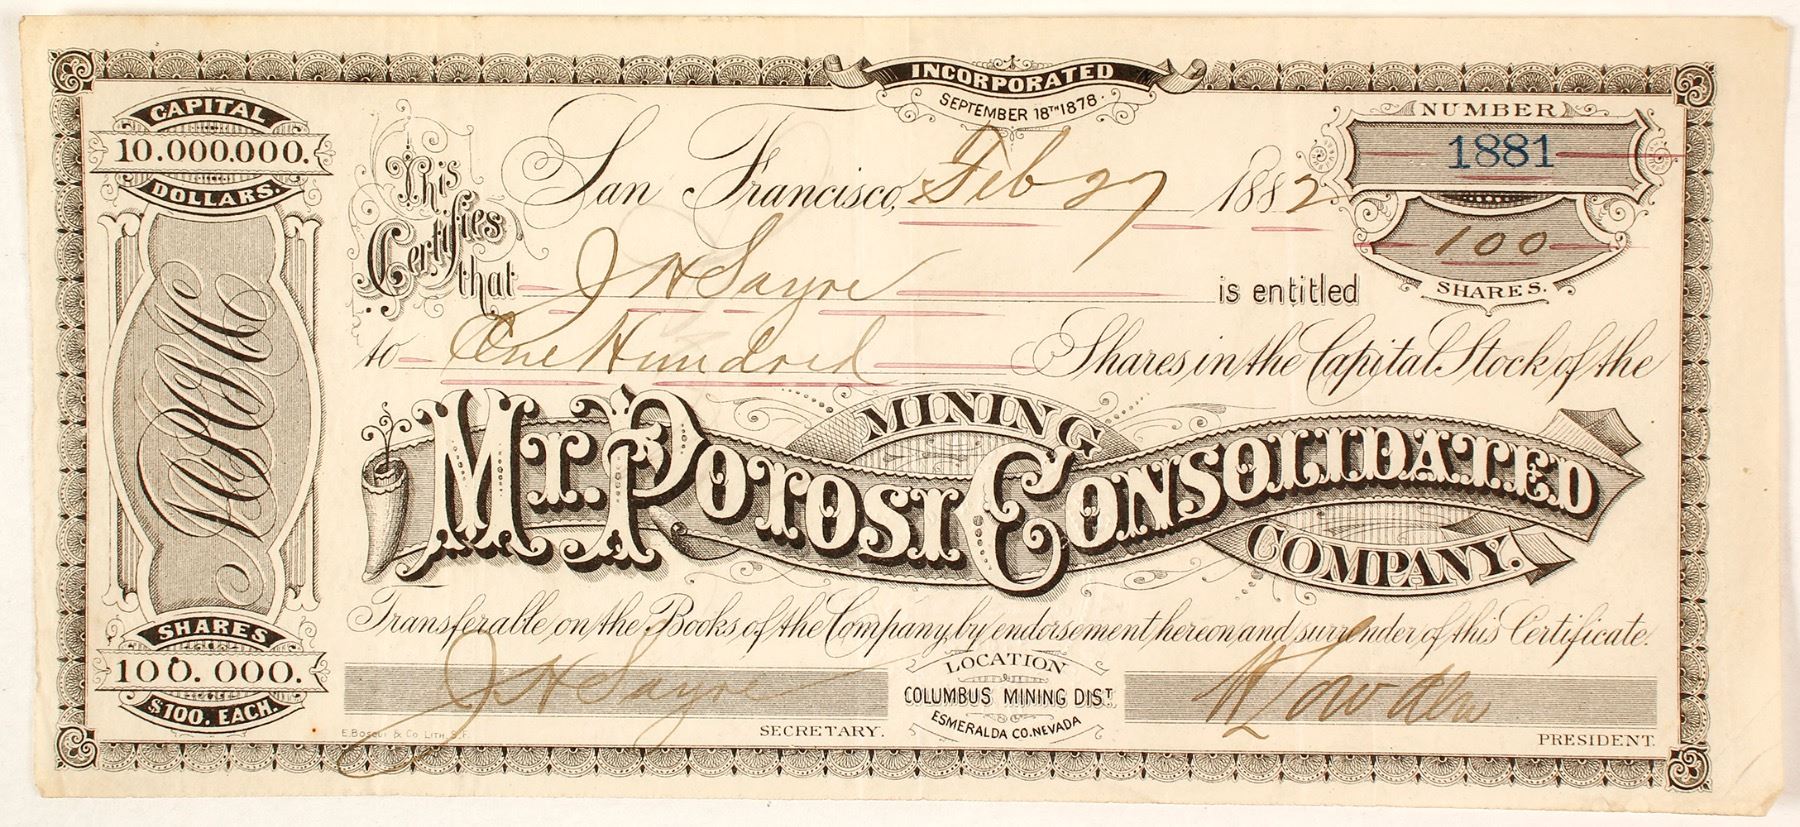 INCORPORATED
SEPTEMBER 18TH 1878.
CAPITAL
10.000.000.
DOLLARS.
NUMBER
1881
100
SHARES.
This Certifies that
San Francisco, Feb 27 1882
J H Sayre is entitled
to One Hundred Shares in the Capital Stock of the
MT. POTOSI MINING CONSOLIDATED
COMPANY.
Transferable on the Books of the Company by endorsement hereon and surrender of this Certificate.
SHARES
100.000.
$100. EACH.
J H Sayre
SECRETARY.
LOCATION
COLUMBUS MINING DIST
ESMERALDA CO. NEVADA
PRESIDENT.
E. Bosqui & Co Lith. S.F.